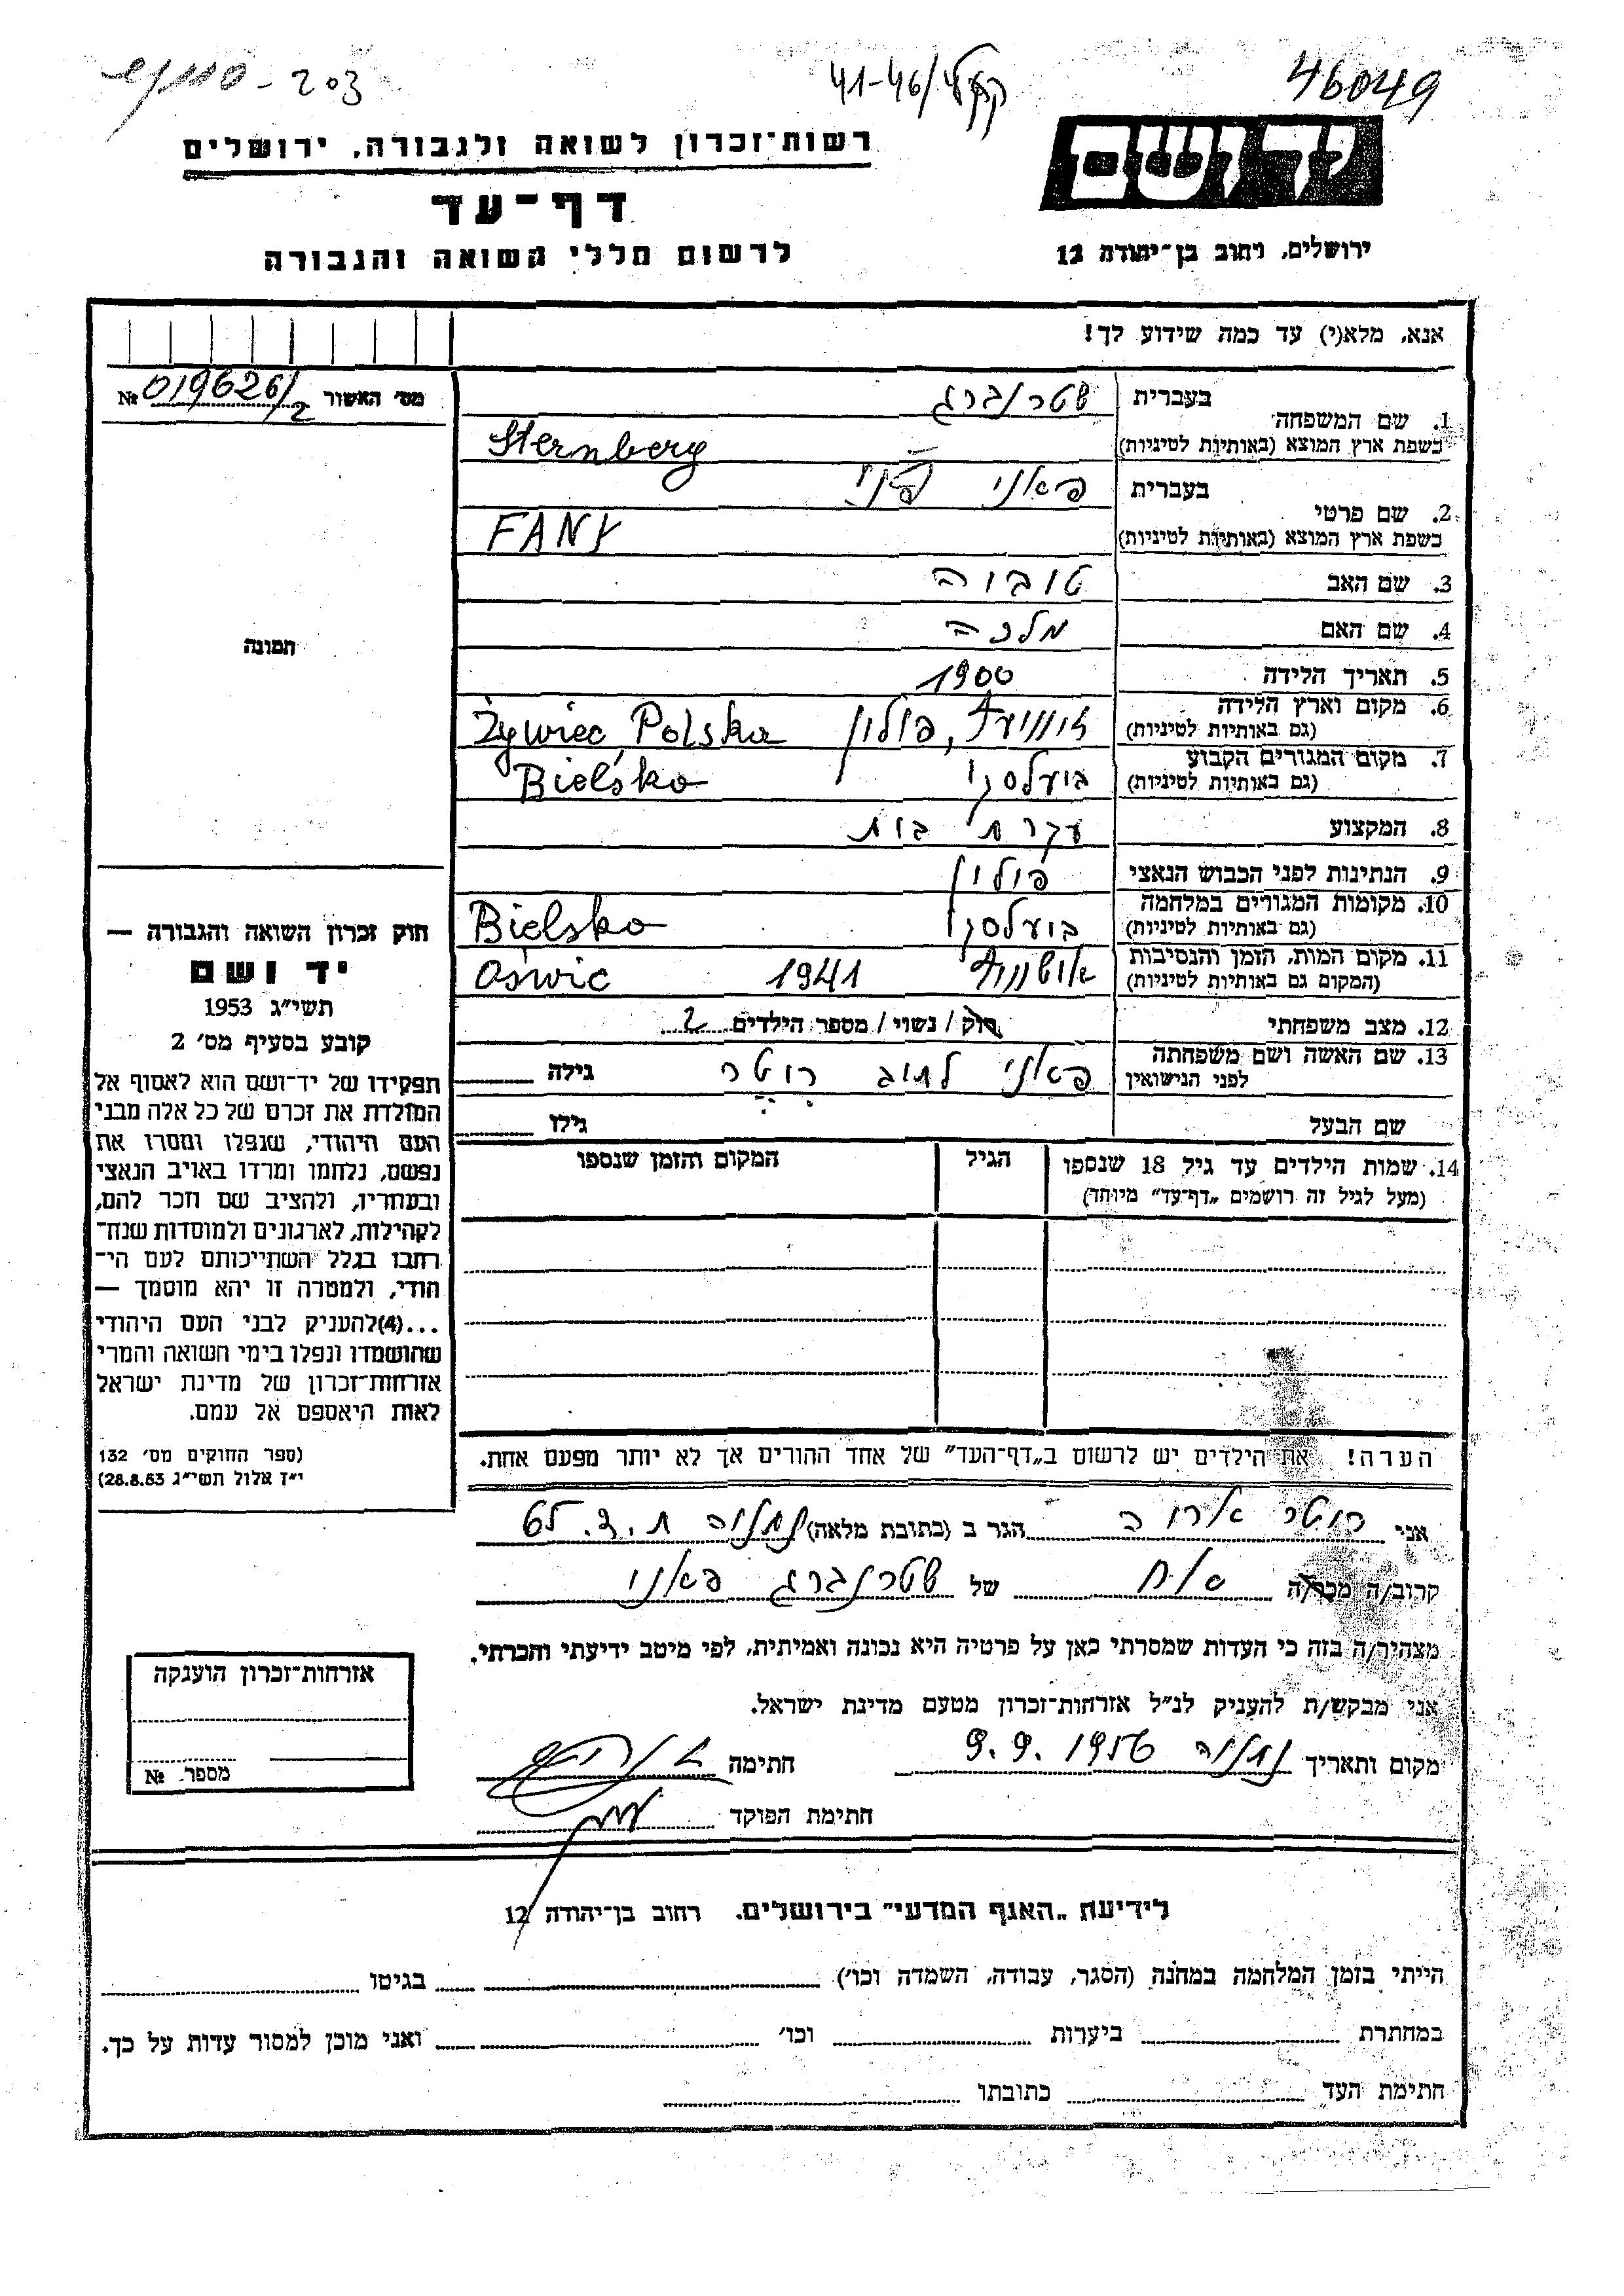 203
41-46/
46049
יד ושם
ירושלים, רחוב בן־יהודה 12
רשות־זכרון לשואה ולגבורה, ירושלים
דף־עד
לרשום חללי השואה והגבורה
אנא, מלא(י) עד כמה שידוע לך!
מס׳ האשור № 019626/2
1. שם המשפחה
בעברית שטרנברג
בשפת ארץ המוצא (באותיות לטיניות) Sternberg
2. שם פרטי
בעברית פאני פני
בשפת ארץ המוצא (באותיות לטיניות) FANY
3. שם האב טוביה
4. שם האם מלכה
5. תאריך הלידה 1900
6. מקום וארץ הלידה
(גם באותיות לטיניות) פולין Żywiec, Polska
7. מקום המגורים הקבוע
(גם באותיות לטיניות) ביעלסקו Bielsko
8. המקצוע עקרת בית
9. הנתינות לפני הכבוש הנאצי פולין
10. מקומות המגורים במלחמה
(גם באותיות לטיניות) ביעלסקו Bielsko
11. מקום המות, הזמן והנסיבות
(המקום גם באותיות לטיניות) 1941 Oświc
12. מצב משפחתי רוק / נשוי / מספר הילדים 2
13. שם האשה ושם משפחתה
לפני הנישואין פאני לבית רוטר גילה
שם הבעל גילו
14. שמות הילדים עד גיל 18 שנספו הגיל המקום והזמן שנספו
(מעל לגיל זה רושמים „דף־עד״ מיוחד)
הערה! את הילדים יש לרשום ב„דף־העד״ של אחד ההורים אך לא יותר מפעם אחת.
תמונה
חוק זכרון השואה והגבורה —
יד ושם
תשי״ג 1953
קובע בסעיף מס׳ 2
תפקידו של יד־ושם הוא לאסוף אל
המולדת את זכרם של כל אלה מבני
העם היהודי, שנפלו ומסרו את
נפשם, נלחמו ומרדו באויב הנאצי
ובעוזריו, ולהציב שם וזכר להם,
לקהילות, לארגונים ולמוסדות שנח־
רחבו בגלל השתייכותם לעם הי־
הודי, ולמטרה זו יהא מוסמך —
...(4)להעניק לבני העם היהודי
שהושמדו ונפלו בימי השואה והמרי
אזרחות־זכרון של מדינת ישראל
לאות היאספם אל עמם.
(ספר החוקים מס׳ 132
י״ז אלול תשי״ג 28.8.53)
אני רוטר הגר ב (כתובת מלאה) נתניה ת.ד. 65
קרוב/ה מכר/ה אח של שטרנברג פאני
מצהיר/ה בזה כי העדות שמסרתי כאן על פרטיה היא נכונה ואמיתית, לפי מיטב ידיעתי והכרתי.
אני מבקש/ת להעניק לנ״ל אזרחות־זכרון מטעם מדינת ישראל.
מקום ותאריך נתניה 9.9.1956 חתימה
חתימת הפוקד
אזרחות־זכרון הוענקה
מספר №
לידיעת „האגף המדעי״ בירושלים, רחוב בן־יהודה 12
הייתי בזמן המלחמה במחנה (הסגר, עבודה, השמדה וכו׳) בגיטו
במחתרת ביערות וכו׳ ואני מוכן למסור עדות על כך.
חתימת העד כתובתו